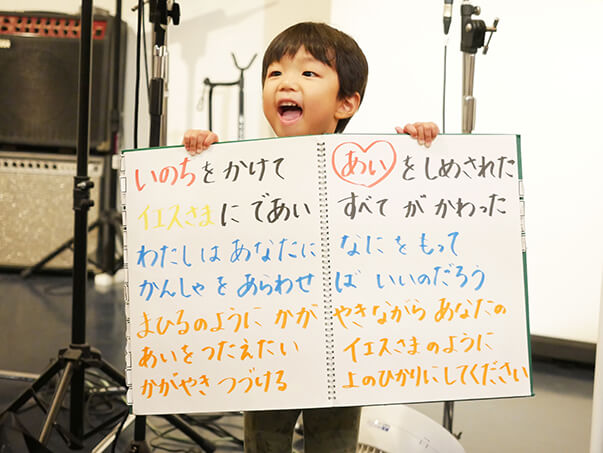 いのちをかけて あいをしめされた
イエスさまにであい すべてがかわった
わたしはあなたに なにをもって
かんしゃをあらわせ ばいいのだろう
まひるのようにかが やきながらあなたの
あいをつたえたい イエスさまのように
かがやきつづける 上のひかりにしてください